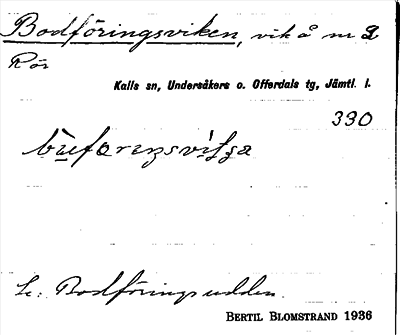 Bodföringsviken, vik å nr 2
Rör
Kalls sn, Undersåkers o. Offerdals tg, Jämtl. l.
330
Se: Bodföringsudden.
BERTIL BLOMSTRAND 1936